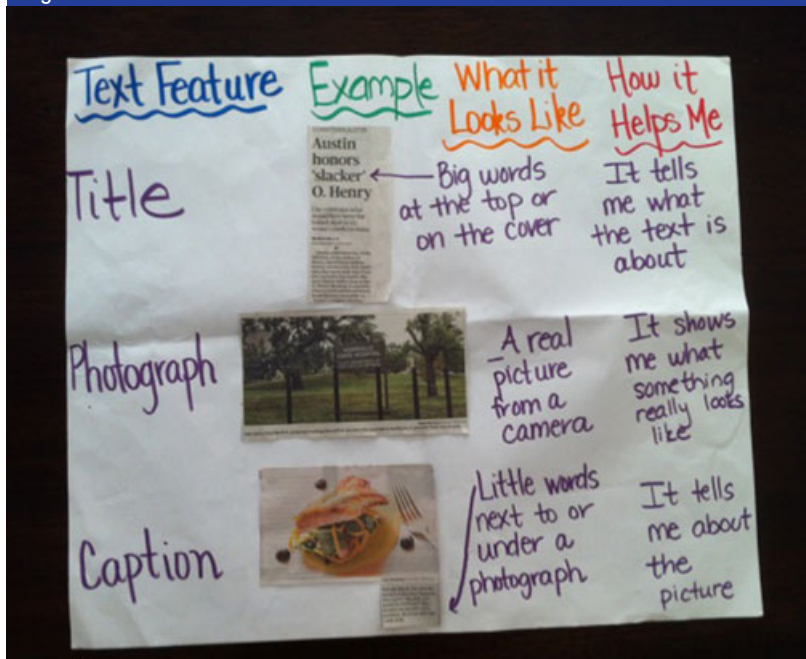 Text Feature
Example
What it
Looks Like
How it
Helps Me
Title
Austin
honors
'slacker'
O. Henry
Big words
at the top or
on the cover
It tells
me what
the text is
about
Photograph
A real
picture
from a
camera
It shows
me what
something
really looks
like
Caption
Little words
next to or
under a
photograph
It tells
me about
the
picture